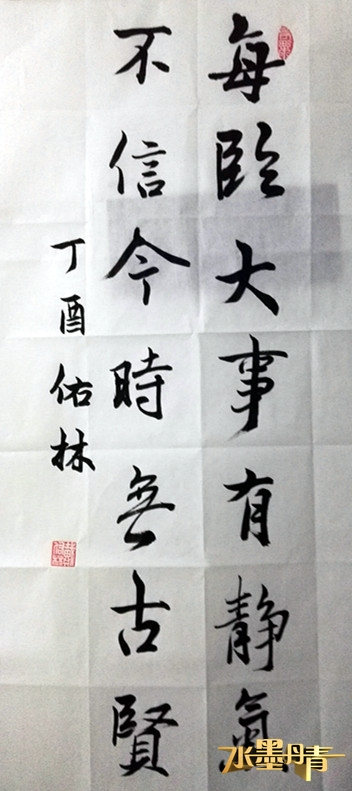 每臨大事有静氣
不信今時無古賢
丁酉佑林
水墨丹青